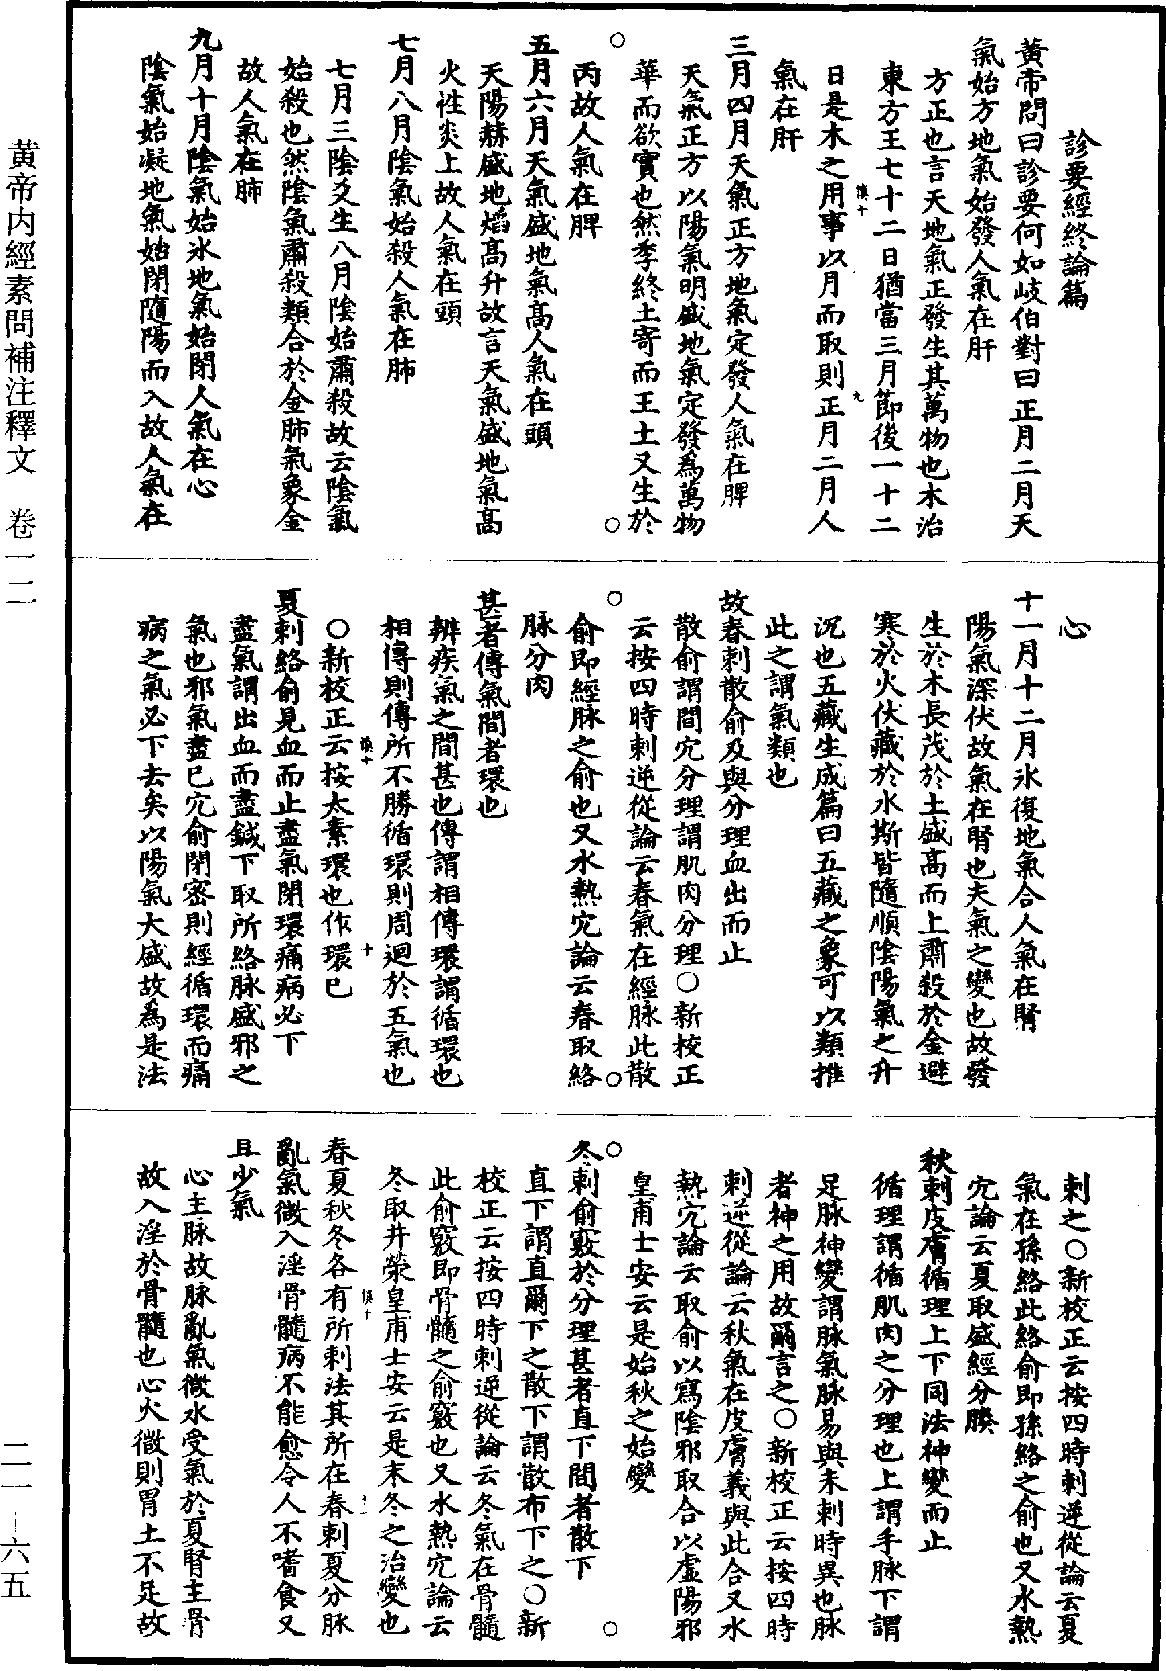 診要經終論篇
黃帝問曰診要何如岐伯對曰正月二月天
氣始方地氣始發人氣在肝
方正也言天地氣正發生其萬物也木治
東方王七十二日猶當三月節後一十二
日是木之用事以月而取則正月二月人
氣在肝
三月四月天氣正方地氣定發人氣在脾
天氣正方以陽氣明盛地氣定發爲萬物
華而欲實也然季終土寄而王土又生於
丙故人氣在脾
五月六月天氣盛地氣高人氣在頭
天陽赫盛地焰高升故言天氣盛地氣高
火性炎上故人氣在頭
七月八月陰氣始殺人氣在肺
七月三陰爻生八月陰始肅殺故云陰氣
始殺也然陰氣肅殺類合於金肺氣象金
故人氣在肺
九月十月陰氣始氷地氣始閉人氣在心
陰氣始凝地氣始閉隨陽而入故人氣在
心
十一月十二月氷復地氣合人氣在腎
陽氣深伏故氣在腎也夫氣之變也故發
生於木長茂於土盛高而上肅殺於金避
寒於火伏藏於水斯皆隨順陰陽氣之升
沉也五藏生成篇曰五藏之象可以類推
此之謂氣類也
故春刺散俞及與分理血出而止
散俞謂間穴分理謂肌肉分理○新校正
云按四時刺逆從論云春氣在經脉此散
俞即經脉之俞也又水熱穴論云春取絡
脉分肉
甚者傳氣間者環也
辨疾氣之間甚也傳謂相傳環謂循環也
相傳則傳所不勝循環則周迴於五氣也
○新校正云按太素環也作環已
夏刺絡俞見血而止盡氣閉環痛病必下
盡氣謂出血而盡鍼下取所絡脉盛邪之
氣也邪氣盡已穴俞閉密則經循環而痛
病之氣必下去矣以陽氣大盛故爲是法
刺之○新校正云按四時刺逆從論云夏
氣在孫絡此絡俞即孫絡之俞也又水熱
穴論云夏取盛經分腠
秋刺皮膚循理上下同法神變而止
循理謂循肌肉之分理也上謂手脉下謂
足脉神變謂脉氣脉易與未刺時異也脉
者神之用故爾言之○新校正云按四時
刺逆從論云秋氣在皮膚義與此合又水
熱穴論云取俞以寫陰邪取合以虛陽邪
皇甫士安云是始秋之始變
冬刺俞竅於分理甚者直下間者散下
直下謂直爾下之散下謂散布下之○新
校正云按四時刺逆從論云冬氣在骨髓
此俞竅即骨髓之俞竅也又水熱穴論云
冬取井滎皇甫士安云是末冬之治變也
春夏秋冬各有所刺法其所在春刺夏分脉
亂氣微入淫骨髓病不能愈令人不嗜食又
且少氣
心主脉故脉亂氣微水受氣於夏腎主骨
故入淫於骨髓也心火微則胃土不足故
黃帝內經素問補注釋文　卷一二
二一－六五